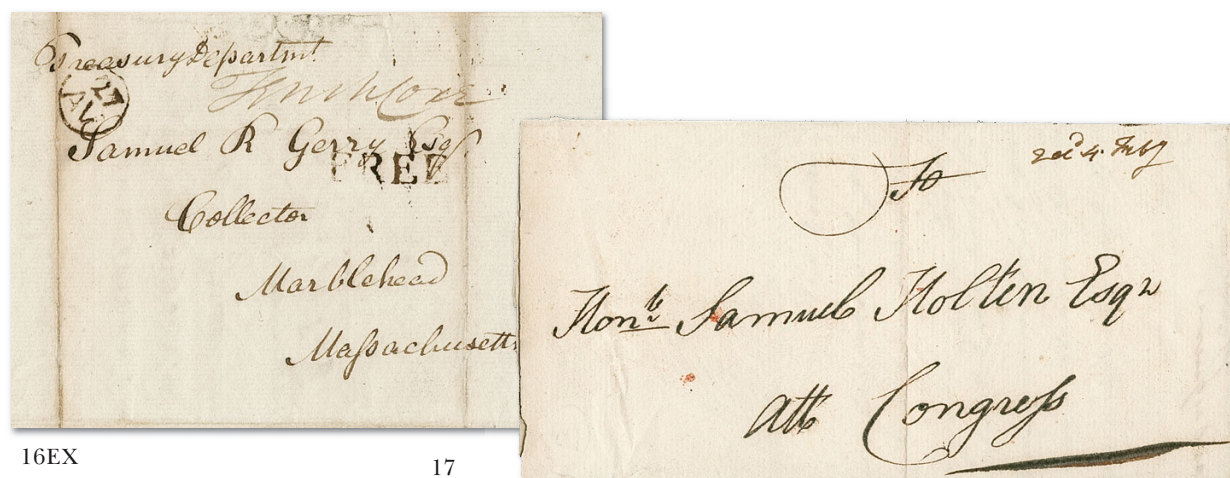 Treasury Departmt
27
AU
Samuel R Gerry Esqr
FREE
Collector
Marblehead
Massachusetts
recd 4. Feby
To
Honle Samuel Holten Esqr
Att Congress
16EX
17